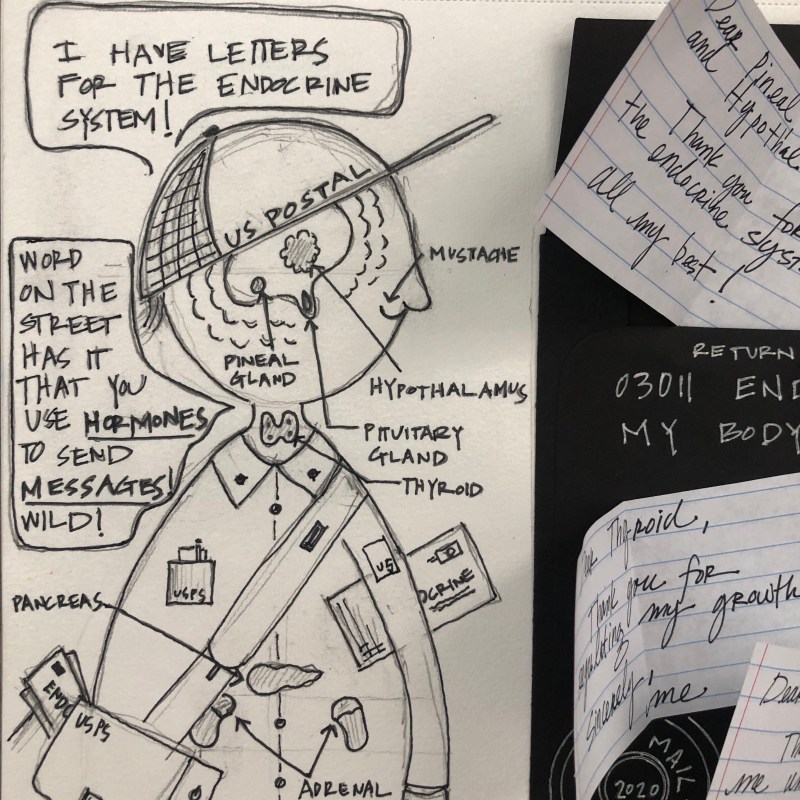 I HAVE LETTERS
FOR THE ENDOCRINE
SYSTEM!
US POSTAL
WORD
ON THE
STREET
HAS IT
THAT YOU
USE HORMONES
TO SEND
MESSAGES!
WILD!
MUSTACHE
PINEAL
GLAND
HYPOTHALAMUS
PITUITARY
GLAND
THYROID
USPS
US
OCRINE
PANCREAS
ENDO
USPS
ADRENAL
Dear Pineal
and Hypothal
Thank you for
the endocrine syst
all my best!
RETURN
03011 END
MY BODY
Thyroid,
Thank you for
my growth
Sincerely,
me
MAIL
2020
Dear
Th
me